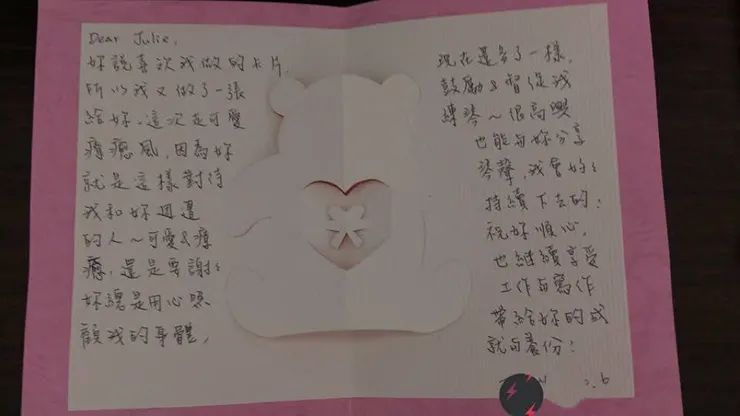 Dear Julie,
妳說喜歡我做的卡片,
所以我又做了一張
給妳,這次走可愛
療癒風,因為妳
就是這樣對待
我和妳週邊
的人~可愛&療
癒,還是要謝:
妳總是用心照
顧我的身體,
現在還多了一樣,
鼓勵&督促我
練琴~很高興
也能與妳分享
琴聲,我會好:
持續下去的!
祝妳順心,
也繼續享受
工作與寫作
帶給妳的成
就與養份!